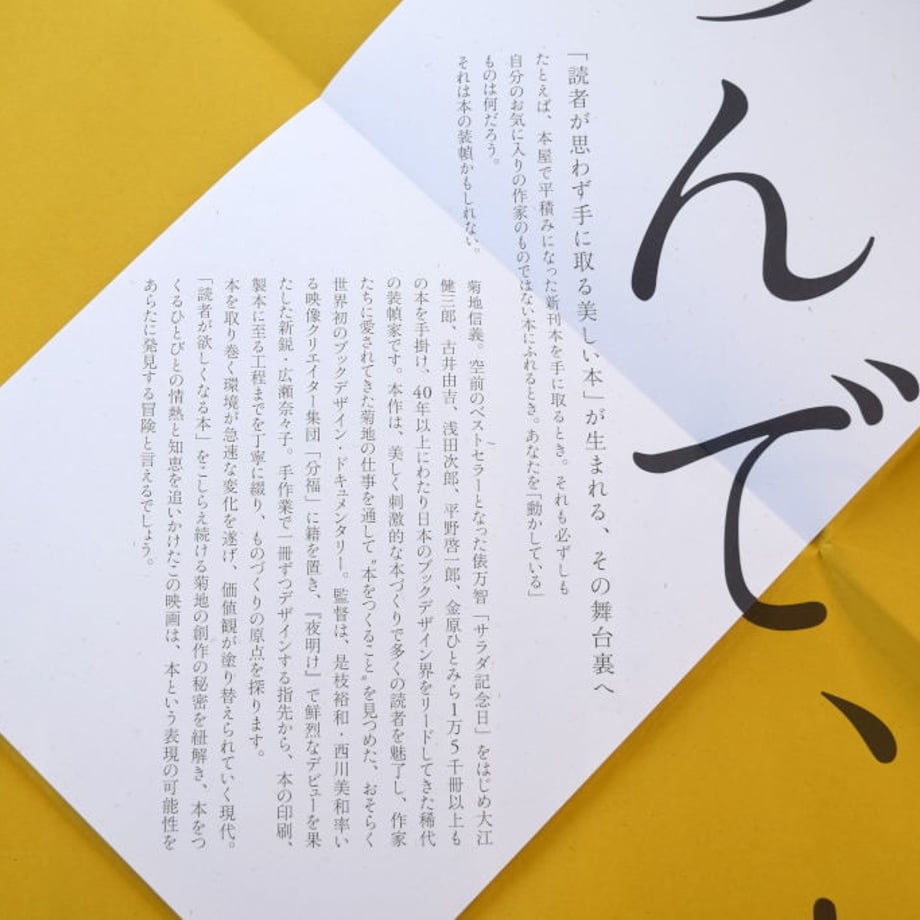 んで、
「読者が思わず手に取る美しい本」が生まれる、その舞台裏へ
たとえば、本屋で平積みになった新刊本を手に取るとき。それも必ずしも
自分のお気に入りの作家のものではない本にふれるとき。あなたを「動かしている」
ものは何だろう。
それは本の装幀かもしれない。
菊地信義。空前のベストセラーとなった俵万智「サラダ記念日」をはじめ大江
健三郎、古井由吉、浅田次郎、平野啓一郎、金原ひとみら1万5千冊以上も
の本を手掛け、40年以上にわたり日本のブックデザイン界をリードしてきた稀代
の装幀家です。本作は、美しく刺激的な本づくりで多くの読者を魅了し、作家
たちに愛されてきた菊地の仕事を通して〝本をつくること〟を見つめた、おそらく
世界初のブックデザイン・ドキュメンタリー。監督は、是枝裕和・西川美和率い
る映像クリエイター集団「分福」に籍を置き、『夜明け』で鮮烈なデビューを果
たした新鋭・広瀬奈々子。手作業で一冊ずつデザインする指先から、本の印刷、
製本に至る工程までを丁寧に綴り、ものづくりの原点を探ります。
本を取り巻く環境が急速な変化を遂げ、価値観が塗り替えられていく現代。
「読者が欲しくなる本」をこしらえ続ける菊地の創作の秘密を紐解き、本をつ
くるひとびとの情熱と知恵を追いかけたこの映画は、本という表現の可能性を
あらたに発見する冒険と言えるでしょう。